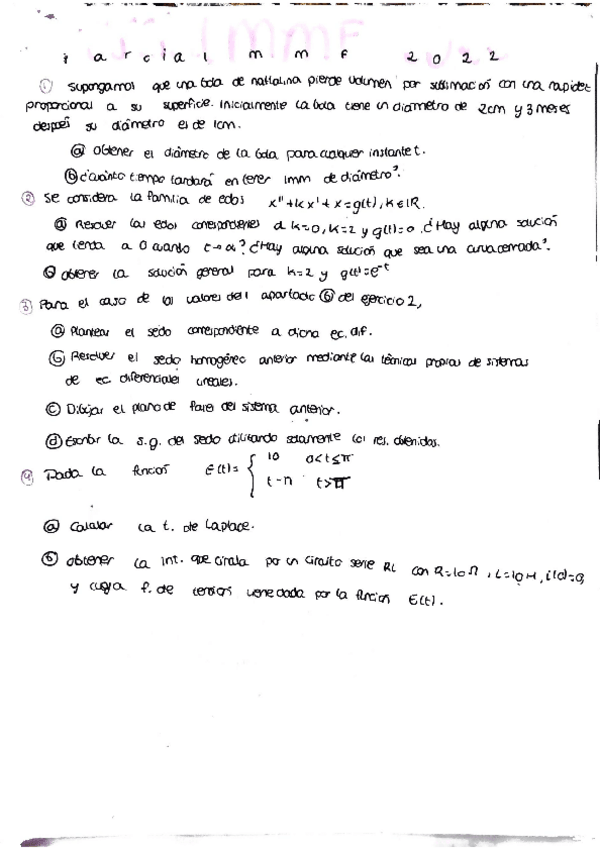 Parcial MMF 2022
① Supongamos que una bola de naftalina pierde volumen por sublimación con una rapidez
proporcional a su superficie. Inicialmente la bola tiene un diámetro de 2cm y 3 meses
después su diámetro es de 1cm.
ⓐ Obtener el diámetro de la bola para cualquier instante t.
ⓑ ¿cuánto tiempo tardará en tener 1mm de diámetro?
② Se considera la familia de edos x''+kx'+x=g(t), k∈ℝ.
ⓐ Resolver las edos correspondientes a k=0, k=2 y g(t)=0. ¿Hay alguna solución
que tienda a 0 cuando t→∞? ¿Hay alguna solución que sea una curva cerrada?
ⓑ obtener la solución general para k=2 y g(t)=e^-t
③ Para el caso de los valores del apartado ⓑ del ejercicio 2,
ⓐ Plantear el sedo correspondiente a dicha ec. dif.
ⓑ Resolver el sedo homogéneo anterior mediante las técnicas propias de sistemas
de ec. diferenciales lineales.
ⓒ Dibujar el plano de fase del sistema anterior.
ⓓ Escribir la s.g. del sedo utilizando solamente los res. obtenidos.
④ Dada la función E(t)= { 10 0<t≤π
t-π t>π
ⓐ Calcular la t. de Laplace.
ⓑ obtener la int. que circula por un circuito serie RL con R=10Ω, L=10H, i(0)=0,
y cuya f. de tensión viene dada por la función E(t).